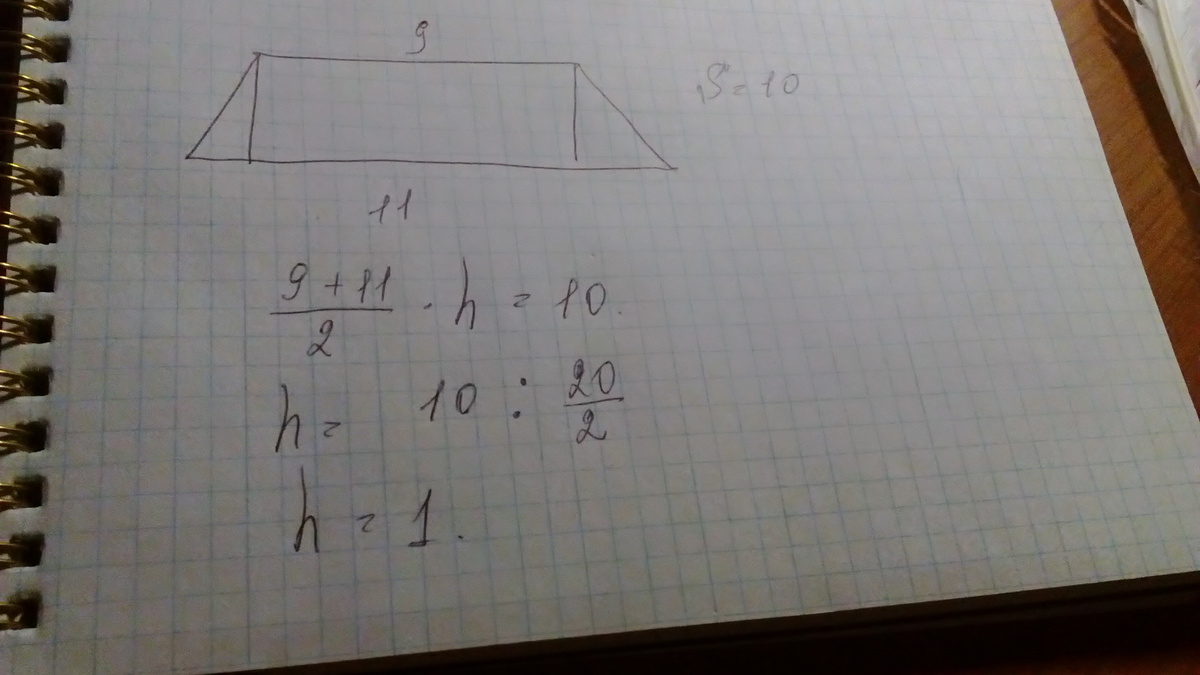 9
S = 10
11
9 + 11 / 2 · h = 10.
h = 10 : 20 / 2
h = 1.